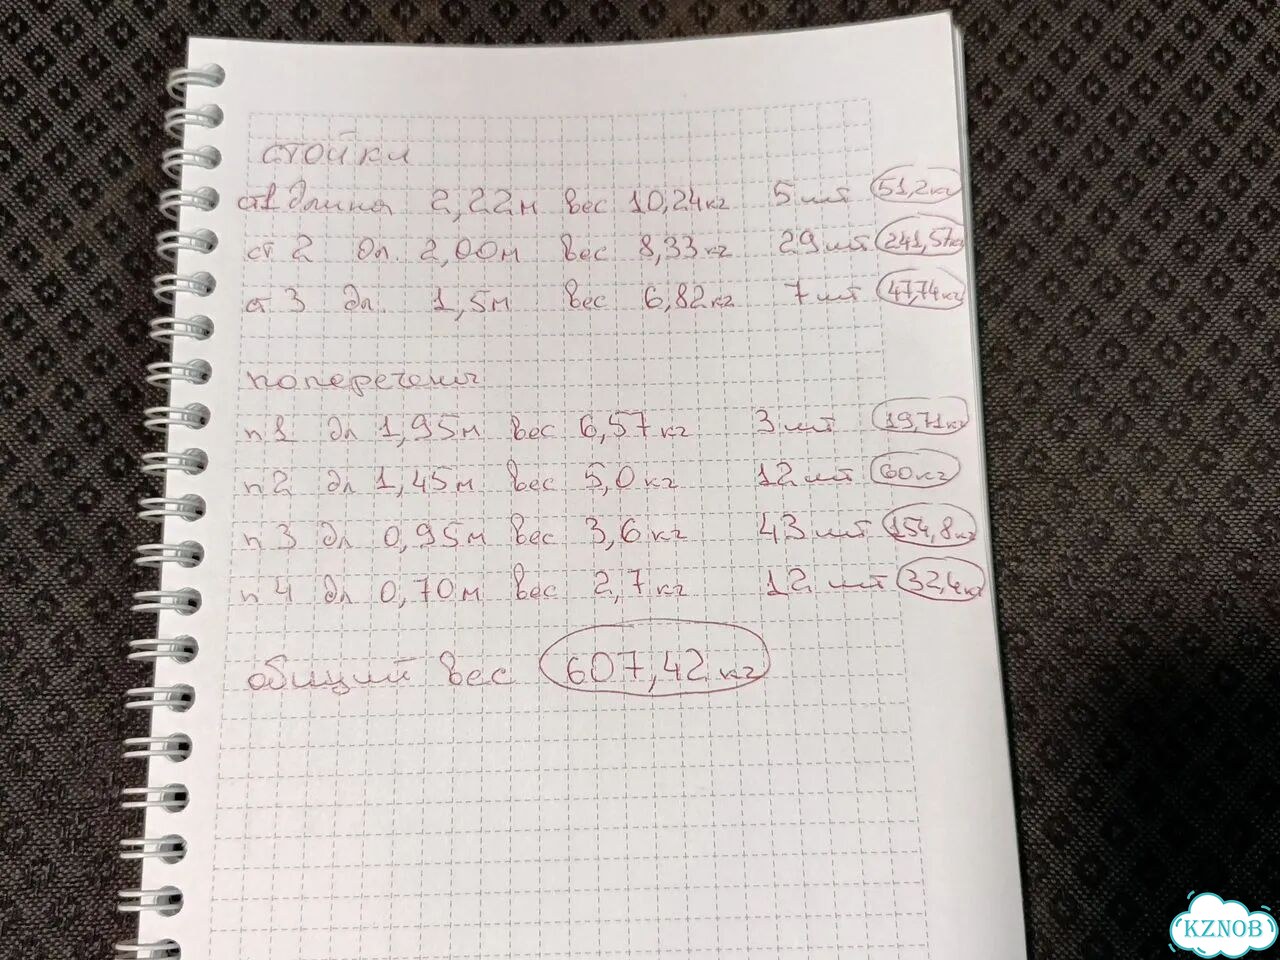 стойки
ст1 длина 2,22м вес 10,24кг 5 шт 51,2кг
ст 2 дл. 2,00м вес 8,33кг 29 шт 241,57кг
ст 3 дл. 1,5м вес 6,82кг 7 шт 47,74кг
поперечены
п1 дл 1,95м вес 6,57кг 3 шт 19,71кг
п2 дл 1,45м вес 5,0кг 12 шт 60кг
п 3 дл 0,95м вес 3,6кг 43 шт 154,8кг
п 4 дл 0,70м вес 2,7кг 12 шт 32,4кг
общий вес 607,42кг
KZNOB